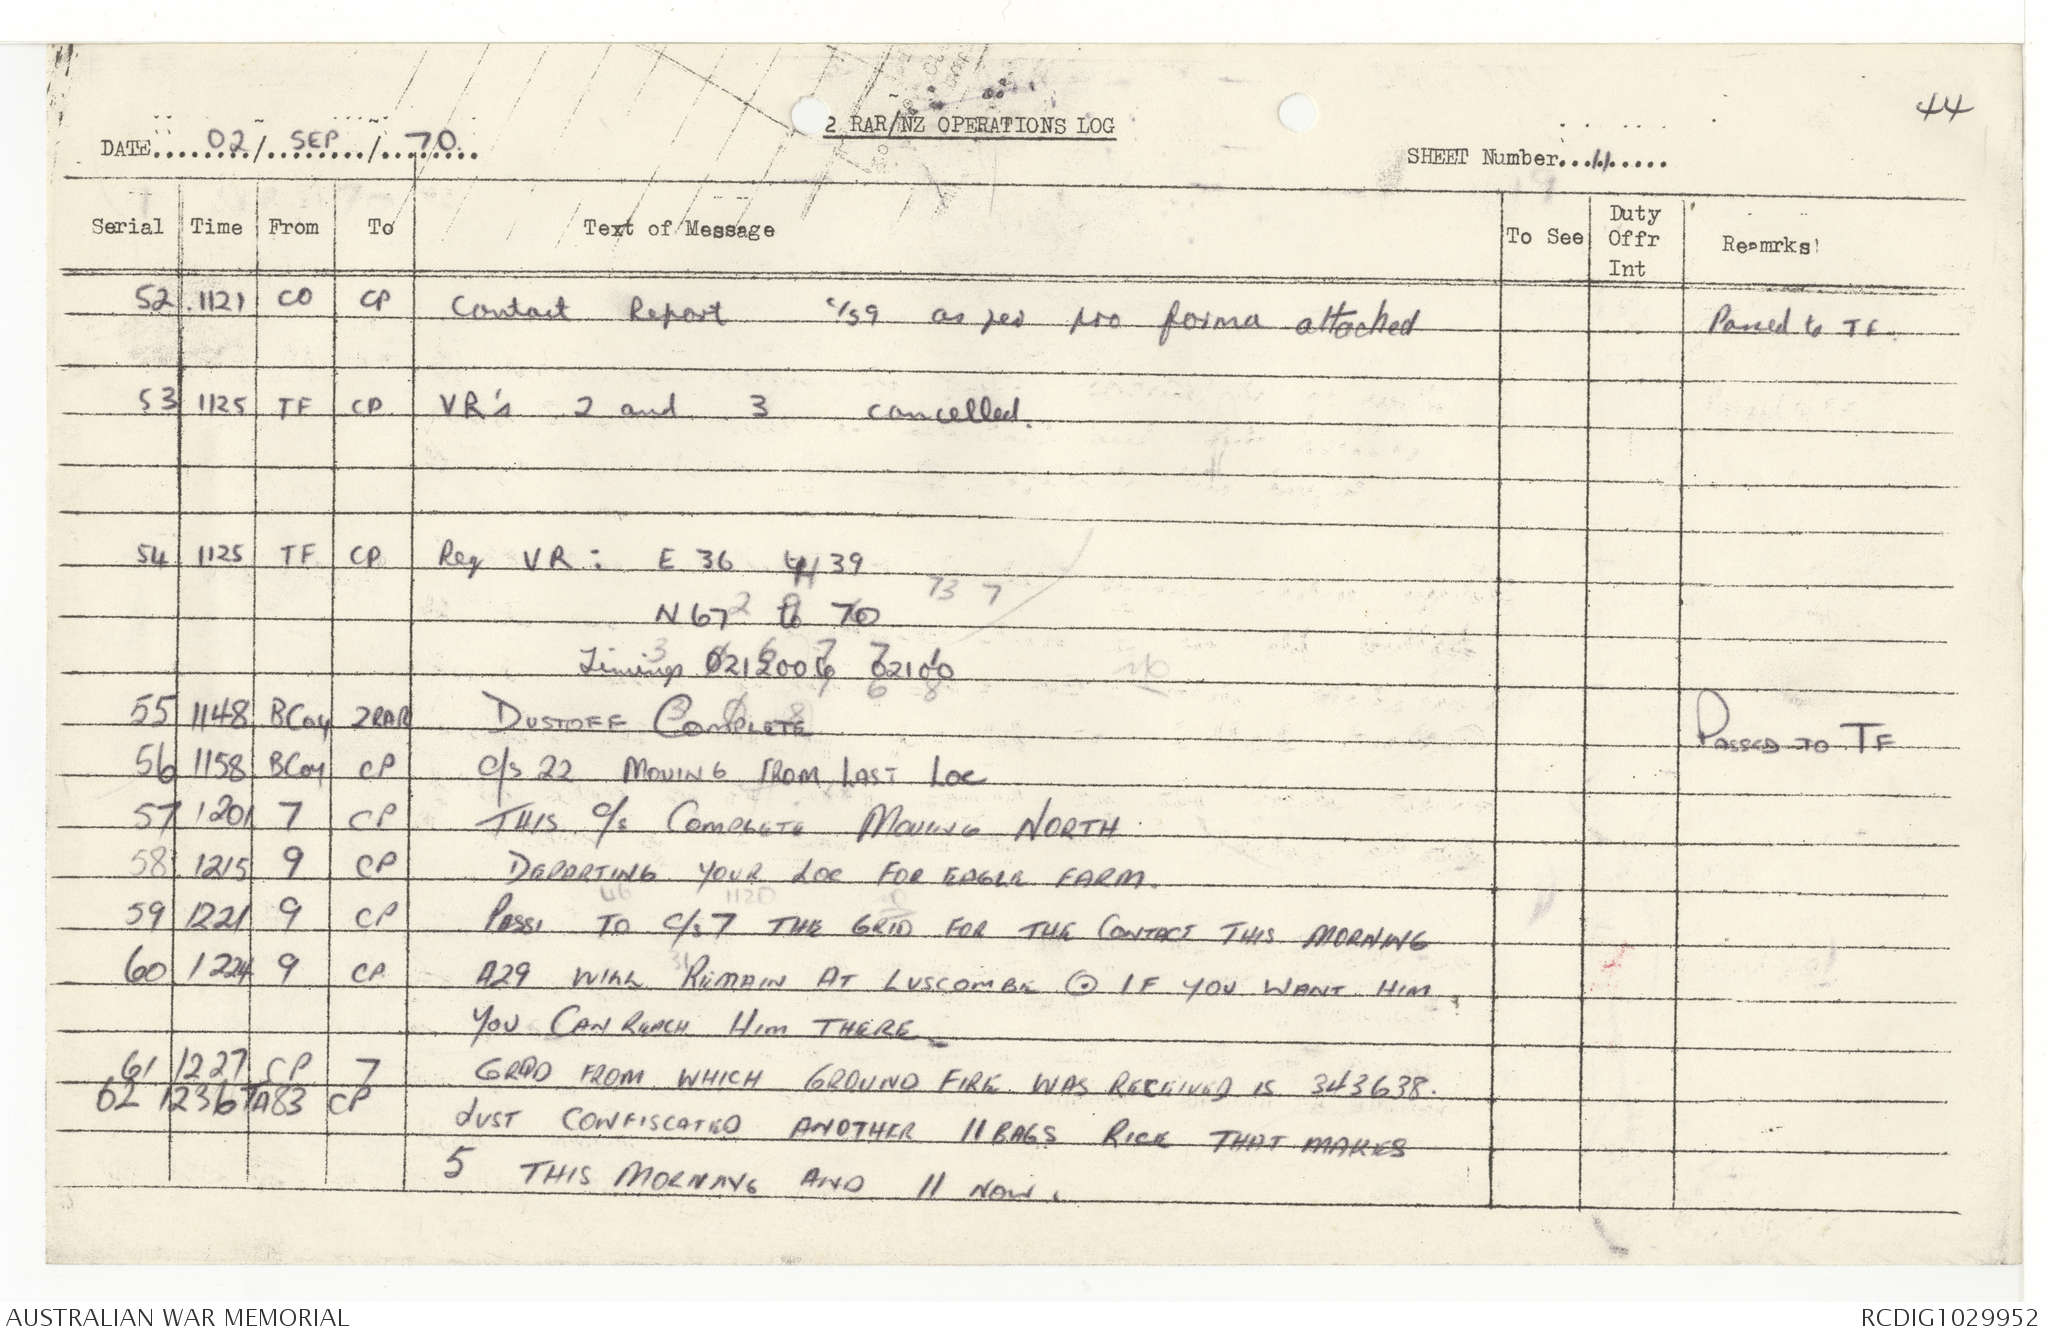 44
2 RAR/NZ OPERATIONS LOG
DATE 02/SEP/70
SHEET Number 11
Serial Time From To Text of Message To See Duty Offr Int Remrks
52 1121 CO CP Contact Report c/s 9 as per pro forma attached Passed to TF.
53 1125 TF CP VR's 2 and 3 cancelled.
54 1125 TF CP Req VR: E 36 39
73 7
N 67 70
Timings
55 1148 BCoy 2RAR DUSTOFF COMPLETE PASSED TO TF
56 1158 BCoy CP C/S 22 MOVING FROM LAST LOC
57 1201 7 CP THIS C/S COMPLETE MOVING NORTH
58 1215 9 CP DEPARTING YOUR LOC FOR EAGLE FARM.
46 1120
59 1221 9 CP PASS TO C/S 7 THE GRID FOR THE CONTACT THIS MORNING
60 1224 9 CP A29 WILL REMAIN AT LUSCOMBE IF YOU WANT HIM
YOU CAN REACH HIM THERE
61 1227 CP 7 GRID FROM WHICH GROUND FIRE WAS RECEIVED IS 343638.
62 1236 TA83 CP JUST CONFISCATED ANOTHER 11 BAGS RICE THAT MAKES
5 THIS MORNING AND 11 NOW.
AUSTRALIAN WAR MEMORIAL
RCDIG1029952